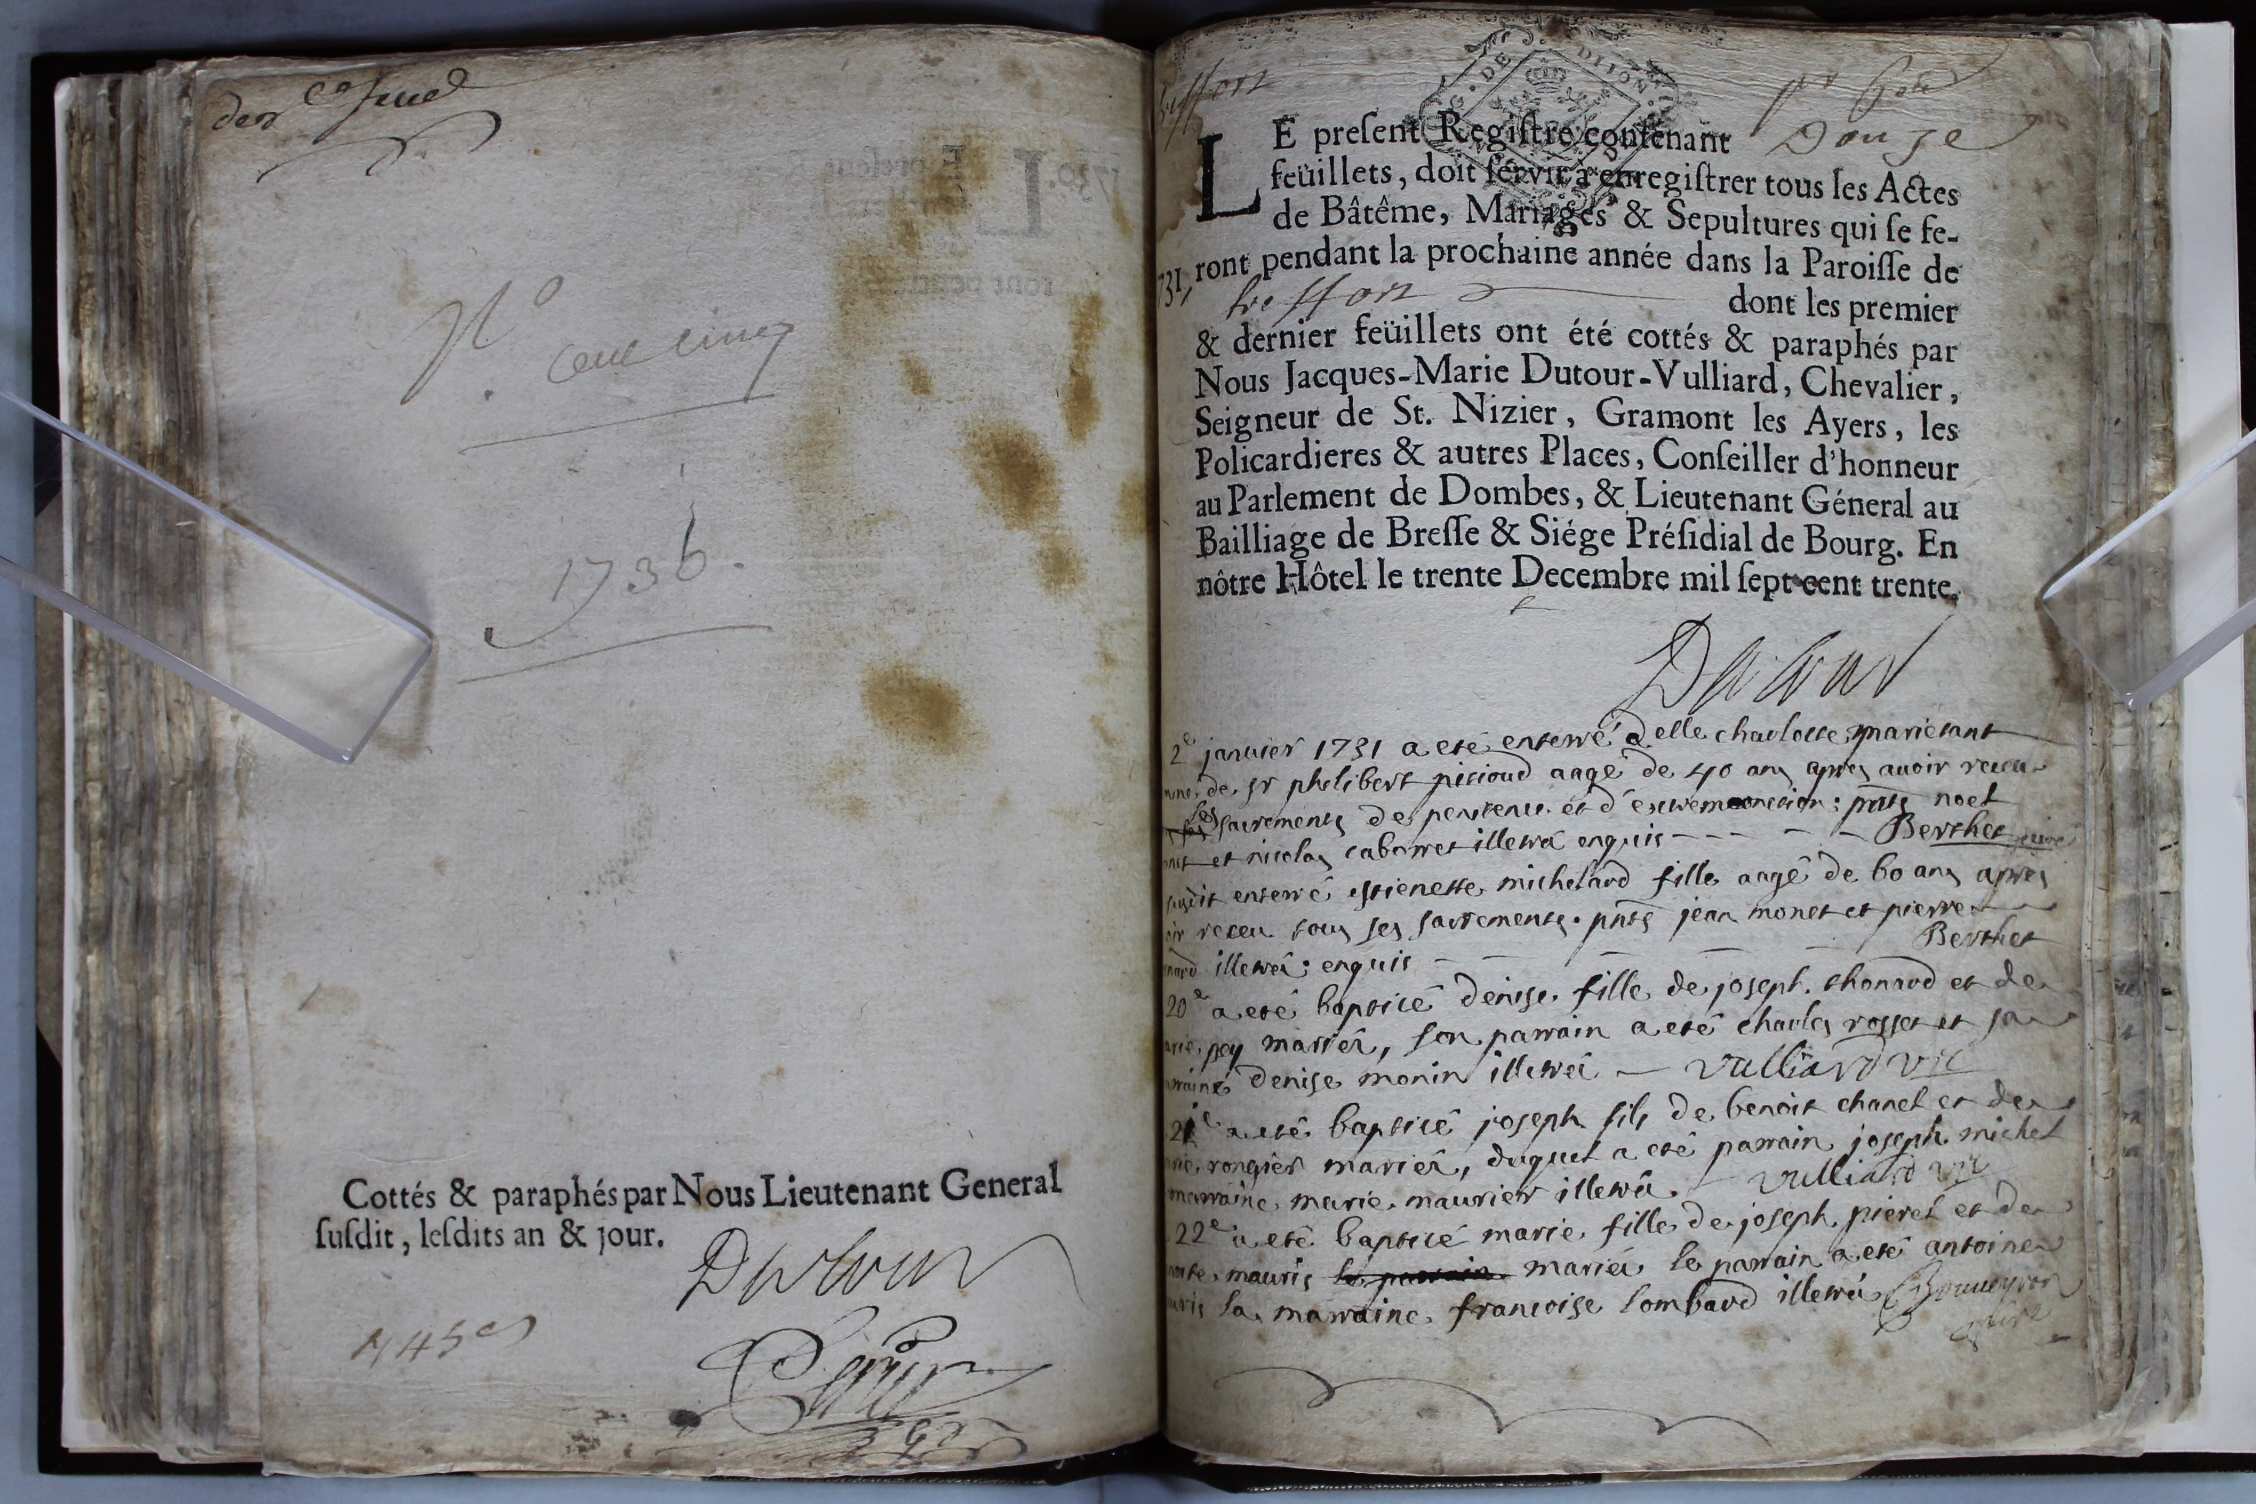 N°
cent cinq
1736.
Cottés & paraphés par Nous Lieutenant General
suſdit, leſdits an & jour.
Dutour
treffort
DE DIJON
LE preſent Regiſtre contenant Douze
feüillets, doit ſervir à enregiſtrer tous les Actes
de Bâtême, Mariages & Sepultures qui ſe fe-
1731, ront pendant la prochaine année dans la Paroiſſe de
treffort dont les premier
& dernier feüillets ont été cottés & paraphés par
Nous Jacques-Marie Dutour-Vulliard, Chevalier,
Seigneur de St. Nizier, Gramont les Ayers, les
Policardieres & autres Places, Conſeiller d'honneur
au Parlement de Dombes, & Lieutenant Géneral au
Bailliage de Breſſe & Siége Préſidial de Bourg. En
nôtre Hôtel le trente Decembre mil ſept cent trente.
Dutour
2e janvier 1731 a eté enterré delle charlotte
de sr philibert aagé de 40 ans apres avoir receu
les sacrements de penitence et d'extremonction: pnts noel
et nicolas cabornet illetré enquis - - - - - Berthet curé
enterré estienette michelard fille aagé de 60 ans apres
receu tous ses sacrements. pnts jean monet et pierre
illetré; enquis Berthet
20e a eté baptisé denise fille de joseph thonard et de
pey mariés, son parrain a eté charles rosset et sa
denise monin illetré — Vulliard vic
21e a eté baptisé joseph fils de benoit chanel et de
rongier mariés, duquel a eté parrain joseph michel
marraine marie maurier illetré. Vulliard vic
22e a eté baptisé marie fille de joseph pierel et de
mauris le parrain mariés le parrain a eté antoine
la marraine francoise lombard illetré